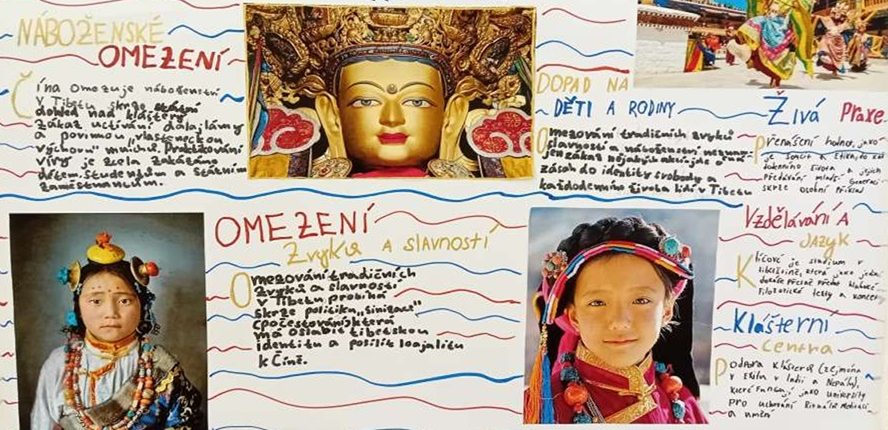 NÁBOŽENSKÉ
OMEZENÍ
Čína omezuje náboženství
v Tibetu skrze státní
dohled nad kláštery
zákaz uctívání dalajlámy
a povinnou „vlasteneckou
výchovu" mnichů. Praktikování
víry je zcela zakázáno
dětem, studentům a státním
zaměstnancům.
OMEZENÍ
Zvyků A SLAVNOSTÍ
Omezování tradičních
zvyků a slavností
v Tibetu probíhá
skrze politiku „sinizace"
(počešťování) která
má oslabit tibetskou
identitu a posílit loajalitu
k Číně.
DOPAD NA
DĚTI A RODINY
Omezování tradičních zvyků
slavností a náboženství
jen zákaz nějakých akcí, ale
zásah do identity svobody a
každodenního života lidí v Tibetu
Živá Praxe
Přenášení hodnot, jako
je soucit a etika, do
života a jejich
předávání mladší generaci
skrze osobní příklad
Vzdělávání A
JAZYK
Klíčové je studium v
tibetštině, která jako
dokáže přesně
filozofické texty a koncepty
Klášterní
centra
Podpora klášterů (zejména
v exilu v Indii a Nepálu),
které fungují jako univerzity
pro uchování
a umění